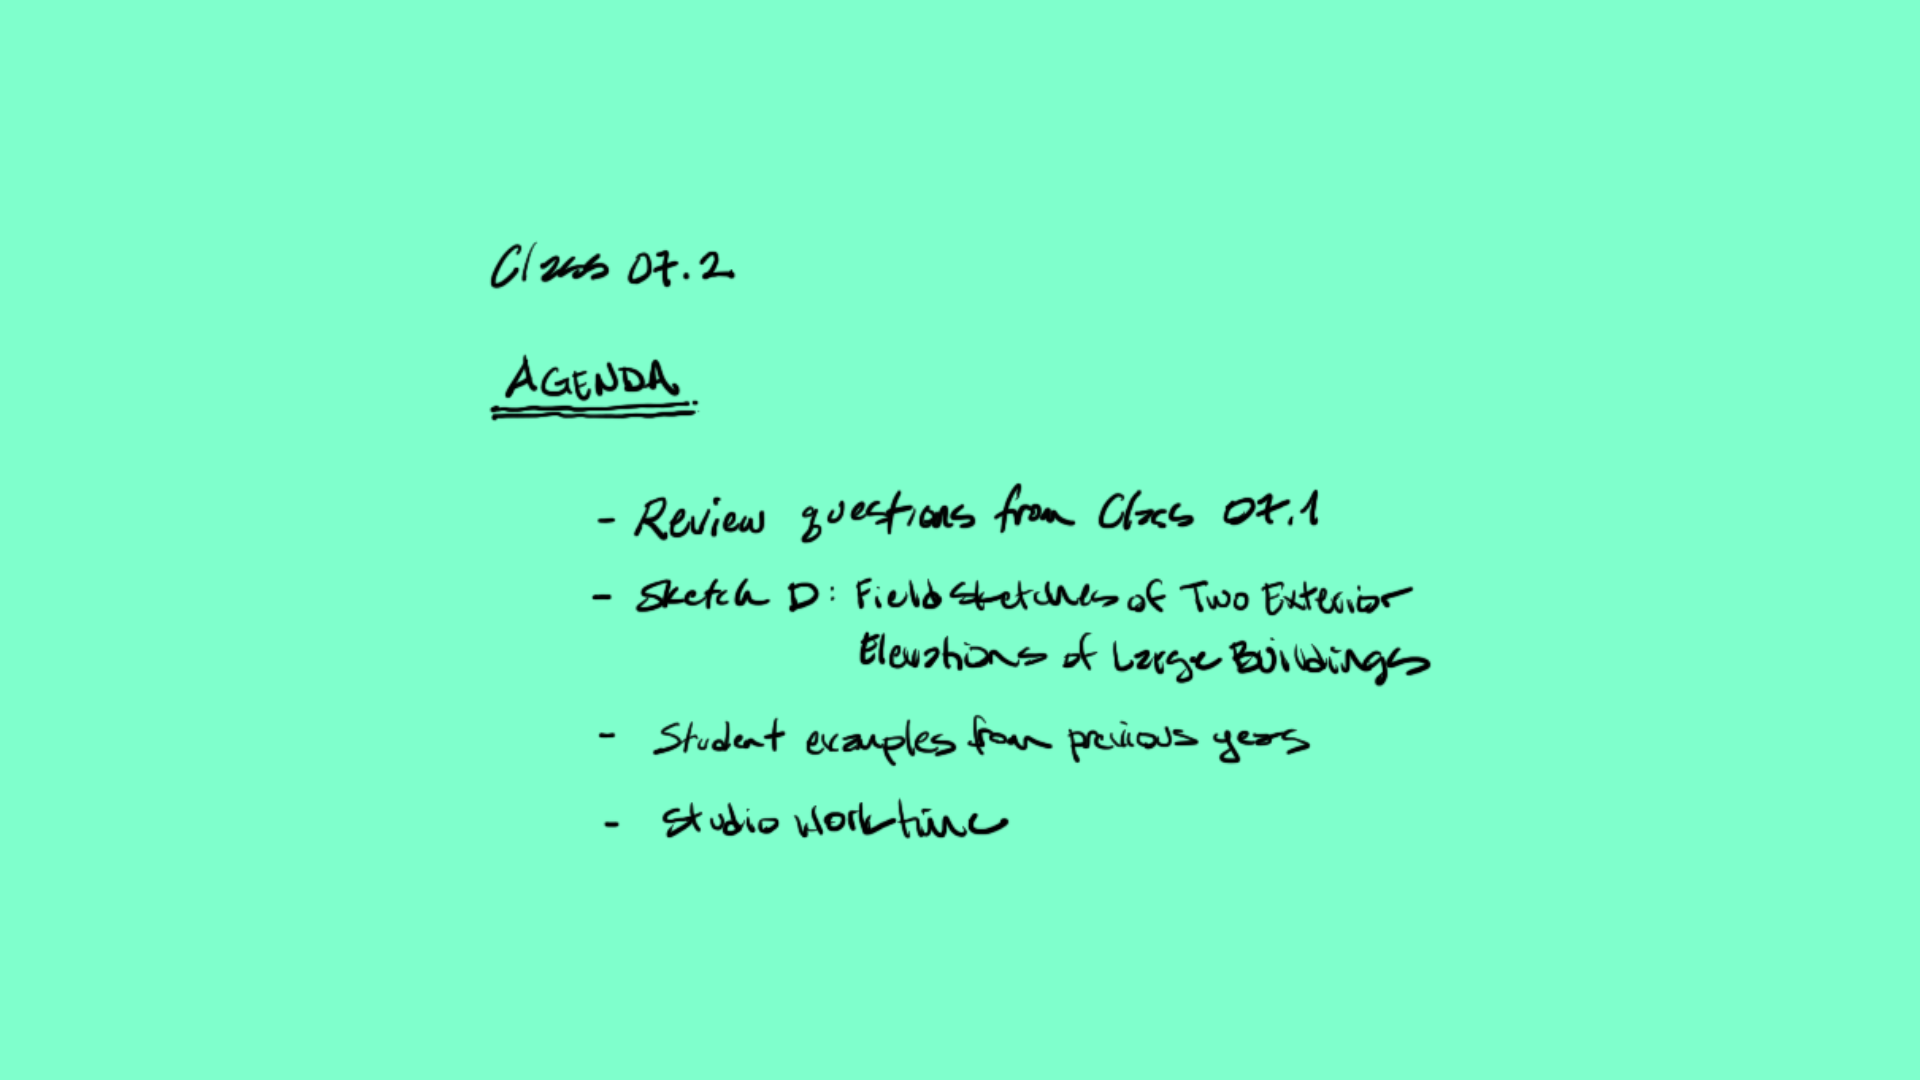 Class 07.2
AGENDA
- Review questions from Class 07.1
- Sketch D: Field Sketches of Two Exterior
Elevations of Large Buildings
- Student examples from previous years
- Studio Work time